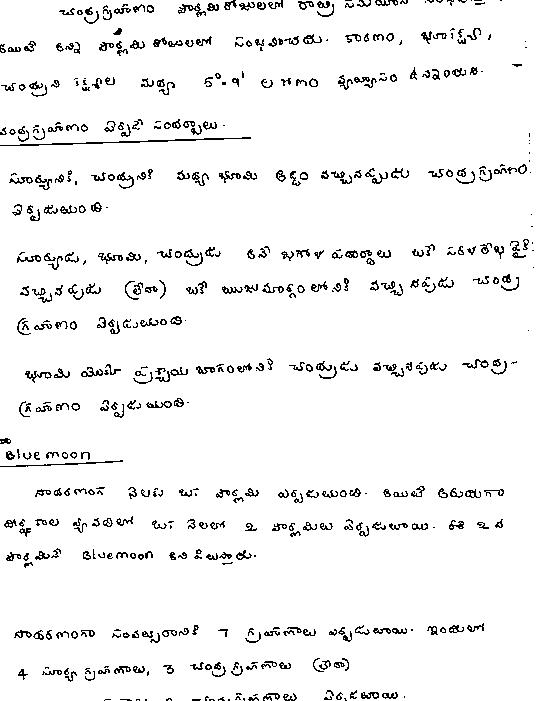 చంద్రగ్రహణం పౌర్ణమి రోజులలో రాత్రి సమయాన
అయితే అన్ని పౌర్ణమి రోజులలో సంభవించదు. కారణం, భూకక్ష్య,
చంద్రుని కక్ష్యల మధ్య 5°-9' ల కోణం వ్యత్యాసం
చంద్రగ్రహణం ఏర్పడే సందర్భాలు.
సూర్యునికి, చంద్రునికి మధ్య భూమి అడ్డం వచ్చినప్పుడు చంద్రగ్రహణం
ఏర్పడుతుంది.
సూర్యుడు, భూమి, చంద్రుడు అనే ఖగోళ పదార్థాలు ఒకే సరళరేఖపైకి
వచ్చినప్పుడు (లేదా) ఒకే ఋజుమార్గంలోనికి వచ్చినప్పుడు చంద్ర
గ్రహణం ఏర్పడుతుంది.
భూమి యొక్క ప్రచ్ఛాయ భాగంలోనికి చంద్రుడు వచ్చినప్పుడు చంద్ర-
గ్రహణం ఏర్పడుతుంది.
Blue moon
సాధరణంగా నెలకు ఒక పౌర్ణమి ఏర్పడుతుంది. అయితే అరుదుగా
కాల వ్యవధిలో ఒక నెలలో 2 పౌర్ణమిలు ఏర్పడుతాయి. ఈ 2వ
పౌర్ణమినే Bluemoon అని పిలుస్తారు.
సాధరణంగా సంవత్సరానికి 7 గ్రహణాలు ఏర్పడుతాయి. ఇందులో
4 సూర్య గ్రహణాలు, 3 చంద్ర గ్రహణాలు (లేదా)
గ్రహణాలు ఏర్పడతాయి.